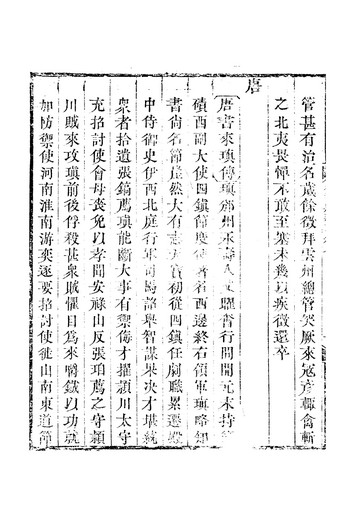 管甚有治名歲餘徵拜雲州總管突厥來寇彥輙禽斬
之北夷畏憚不敢至塞未幾以疾徵還卒
唐
唐書來瑱傳瑱邠州永壽人父曜奮行間開元末持節
磧西副大使四鎭節度使著名西邊終右領軍瑱略知
書尙名節崖然大有志天寶初從四鎭任劇職累遷殿
中侍御史伊西北庭行軍司馬詔舉智謀果决才堪統
衆者拾遺張鎬薦瑱能斷大事有禦侮才擢潁川太守
充招討使會母喪免以孝聞安祿山反張垍薦之守潁
川賊來攻瑱前後俘殺甚衆賊懼目爲來嚼鐵以功就
加防禦使河南淮南游奕逐要招討使徙山南東道節